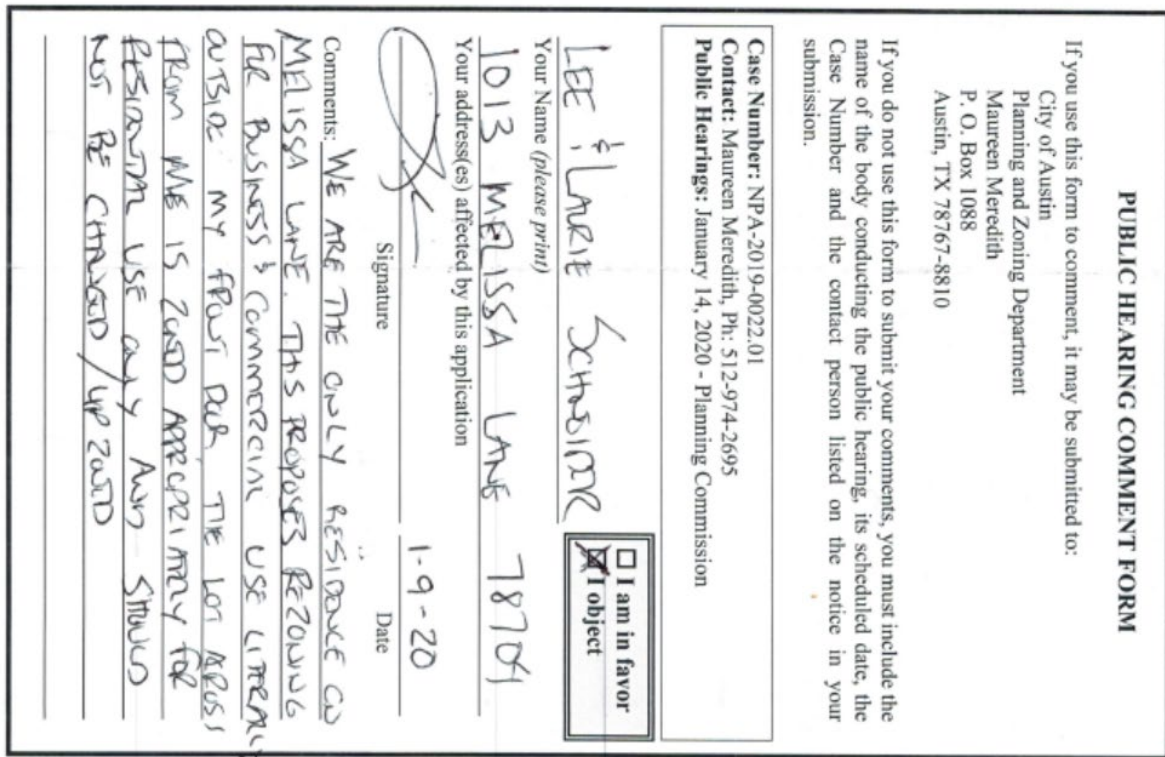 PUBLIC HEARING COMMENT FORM
If you use this form to comment, it may be submitted to:
City of Austin
Planning and Zoning Department
Maureen Meredith
P. O. Box 1088
Austin, TX 78767-8810
If you do not use this form to submit your comments, you must include the
name of the body conducting the public hearing, its scheduled date, the
Case Number and the contact person listed on the notice in your
submission.
Case Number: NPA-2019-0022.01
Contact: Maureen Meredith, Ph: 512-974-2695
Public Hearings: January 14, 2020 - Planning Commission
LEE & LAURIE SCHNEIDER
Your Name (please print)
☐ I am in favor
☒ I object
1013 MELISSA LANE 78704
Your address(es) affected by this application
1-9-20
Signature Date
Comments: WE ARE THE ONLY RESIDENCE ON
MELISSA LANE. THIS PROPOSES REZONING
FOR BUSINESS & COMMERCIAL USE LITERALLY
OUTSIDE MY FRONT DOOR. THE LOT ACROSS
FROM ME IS ZONED APPROPRIATELY FOR
RESIDENTIAL USE ONLY AND SHOULD
NOT BE CHANGED / UP ZONED